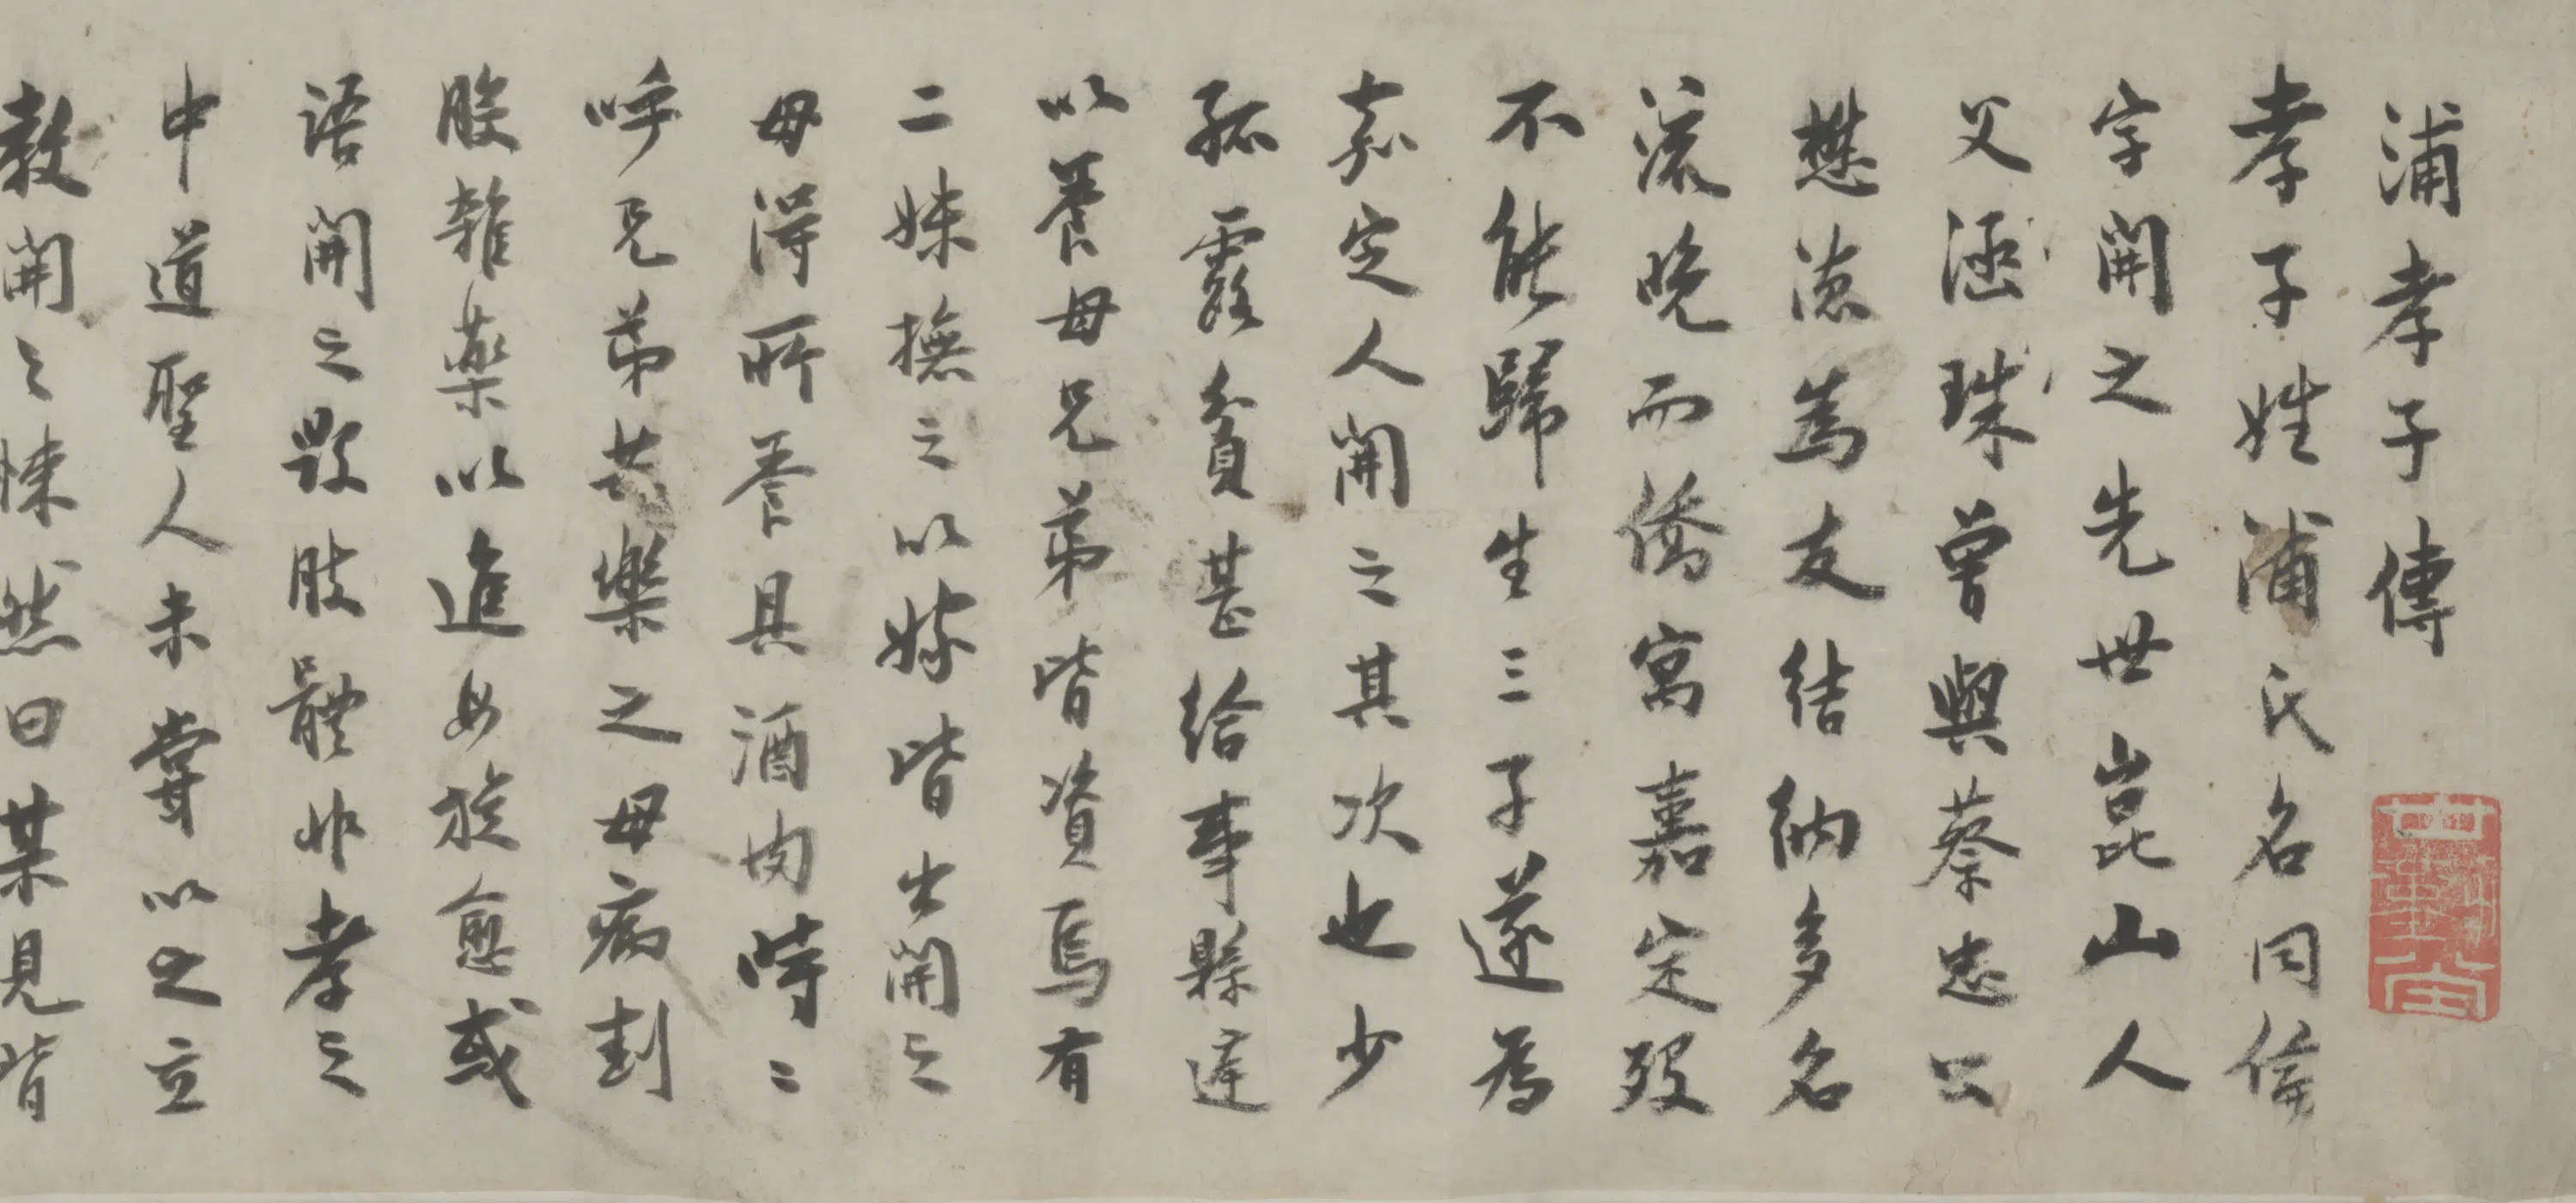 浦孝子傳
孝子姓浦氏名同俻
字開之先世崑山人
父涵珠曾與蔡忠公
懋德為友結納多名
流晚而僑寓嘉定歿
不能歸生三子遂為
嘉定人開之其次也少
孤露貧甚給事縣達
以養母兄弟皆資焉有
二妹撫之以嫁皆出開之
母得所養具酒肉時〻
呼兄弟共樂之母病刲
股雜藥以進母旋愈或
語開之毀肢體非孝之
中道聖人未嘗以之立
教開之悚然曰某見皆